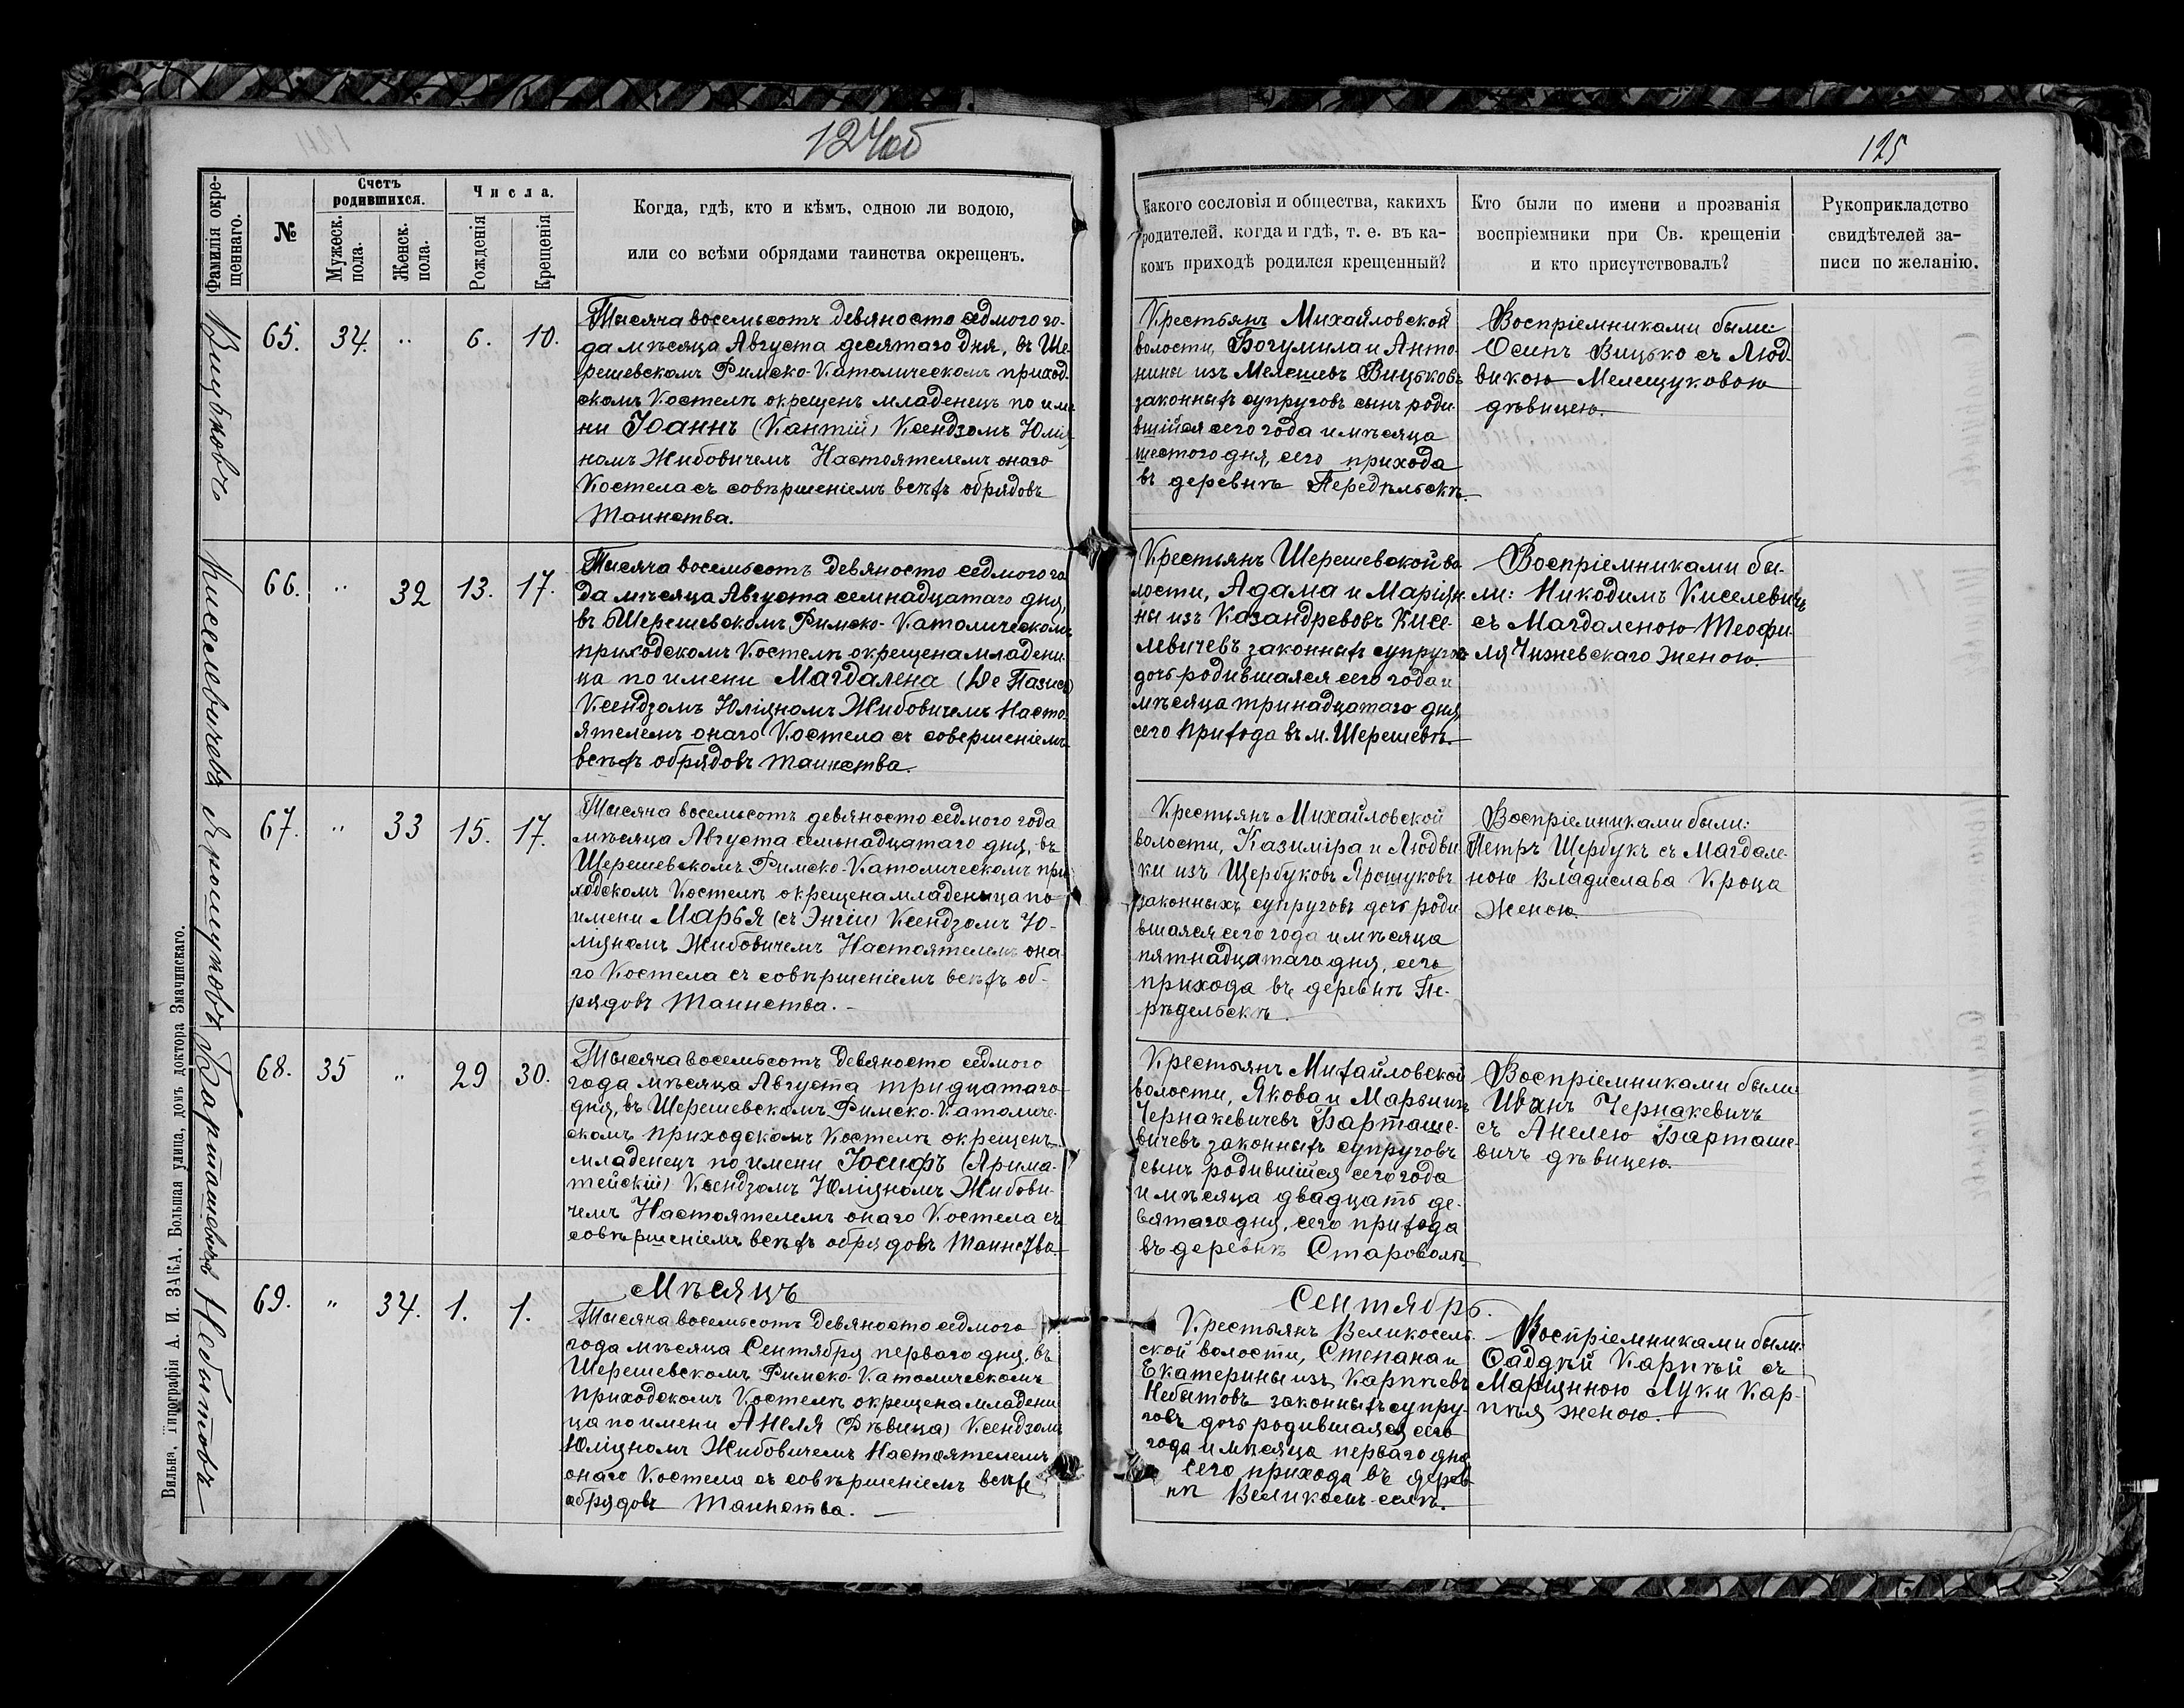 124об
125
Фамилія окре-
щеннаго.
№
Счетъ
родившихся.
Мужеск.
пола.
Женск.
пола.
Числа.
Рожденія
Крещенія
Когда, гдѣ, кто и кѣмъ, одною ли водою,
или со всѣми обрядами таинства окрещенъ.
Какого сословія и общества, какихъ
родителей, когда и гдѣ, т. е. въ ка-
комъ приходѣ родился крещенный?
Кто были по имени и прозванія
воспріемники при Св. крещеніи
и кто присутствовалъ?
Рукоприкладство
свидѣтелей за-
писи по желанію.
Вицьковъ
65. 34. " 6. 10.
Тысяча восемьсотъ девяносто седмого го-
да мѣсяца Августа десятаго дня, въ Ше-
решевскомъ Римско-Католическомъ приход-
скомъ Костелѣ окрещенъ младенецъ по име-
ни Іоаннъ (Кантій) Ксендзомъ Юлія-
номъ Жибовичемъ Настоятелемъ онаго
Костела съ совѣршеніемъ всѣхъ обрядовъ
Таинства.
Крестьянъ Михайловской
волости, Богумила и Анто-
нины изъ Мелешевъ Вицьковъ
законныхъ супруговъ сынъ роди-
вшійся сего года и мѣсяца
шестого дня, сего прихода
въ деревнѣ Передѣльскѣ.
Воспріемниками были:
Осипъ Вицько съ Люд-
викою Мелещуковою
дѣвицею.
Киселевичевъ
66. " 32 13. 17.
Тысяча восемьсотъ девяносто седмого го-
да мѣсяца Августа семнадцатаго дня,
въ Шерешевскомъ Римско-Католическомъ
приходскомъ Костелѣ окрещена младени-
ца по имени Магдалена (Де Пазисъ)
Ксендзомъ Юліяномъ Жибовичемъ Насто-
ятелемъ онаго Костела съ совершеніемъ
всѣхъ обрядовъ таинства.
Крестьянъ Шерешевской во-
лости, Адама и Маріян-
ны изъ Казандревовъ Кисе-
левичевъ законныхъ супруговъ
дочь родившаяся сего года и
мѣсяца тринадцатаго дня,
сего прихода въ м. Шерешевѣ.
Воспріемниками бы-
ли: Никодимъ Киселевичъ
съ Магдаленою Теофи-
ля Чижевскаго женою.
Ярошуковъ
67. " 33 15. 17.
Тысяча восемьсотъ девяносто седмого года
мѣсяца Августа семьнадцатаго дня, въ
Шерешевскомъ Римско-Католическомъ при-
ходскомъ Костелѣ окрещена младеница по
имени Марья (съ Энгіи) Ксендзомъ Ю-
ліяномъ Жибовичемъ Настоятелемъ она-
го Костела съ совѣршеніемъ всѣхъ об-
рядовъ Таинства. -
Крестьянъ Михайловской
волости, Казиміра и Людви-
ки изъ Щербуковъ Ярошуковъ
законныхъ супруговъ дочь роди-
вшаяся сего года и мѣсяца
пятнадцатаго дня, сего
прихода въ деревнѣ Пе-
рѣдельскѣ.
Воспріемниками были:
Петръ Щербукъ съ Магдале-
ною Владислава Кроца
женою.
Барташевичъ
68. 35 " 29 30.
Тысяча восемьсотъ девяносто седмого
года мѣсяца Августа тридцатаго
дня, въ Шерешевскомъ Римско-Католиче-
скомъ приходскомъ Костелѣ окрещенъ
младенецъ по имени Іосифъ (Арима-
тейскій) Ксендзомъ Юліяномъ Жибови-
чемъ Настоятелемъ онаго Костела съ
совѣршеніемъ всѣхъ обрядовъ Таинства.
Крестьянъ Михайловской
волости, Якова и Марьи изъ
Чернакевичевъ Барташе-
вичевъ законныхъ супруговъ
сынъ родившійся сего года
и мѣсяца двадцать де-
вятаго дня, сего прихода
въ деревнѣ Староволѣ
Воспріемниками были:
Иванъ Чернакевичъ
съ Анелею Барташе-
вичъ дѣвицею.
Небытовъ
Мѣсяцъ
Сентябрь.
69. " 34. 1. 1.
Тысяча восемьсотъ девяносто седмого
года мѣсяца Сентября перваго дня, въ
Шерешевскомъ Римско-Католическомъ
приходскомъ Костелѣ окрещена младени-
ца по имени Анеля (Дѣвица) Ксендзомъ
Юліяномъ Жибовичемъ Настоятелемъ
онаго Костела съ совѣршеніемъ всѣхъ
обрядовъ Таинства. -
Крестьянъ Великосель-
ской волости, Степана и
Екатерины изъ Карпѣевъ
Небытовъ законныхъ супру-
говъ дочь родившаяся сего
года и мѣсяца перваго дня
сего прихода въ дерев-
нѣ Великомъ-селѣ.
Воспріемниками были:
Фаддѣй Карпѣй съ
Маріянною Луки Кар-
пѣя женою.
Вильна, Типографія А. И. ЗАКА, Большая улица, домъ доктора Змачинскаго.